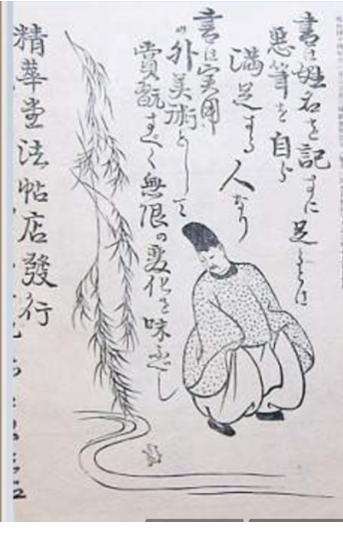 書は姓名を記すに足るとは
悪筆を自ら
満足する人なり
書は実用
の外美術として
賞翫すべく無限の変化を味ふべし
精華堂法帖店發行